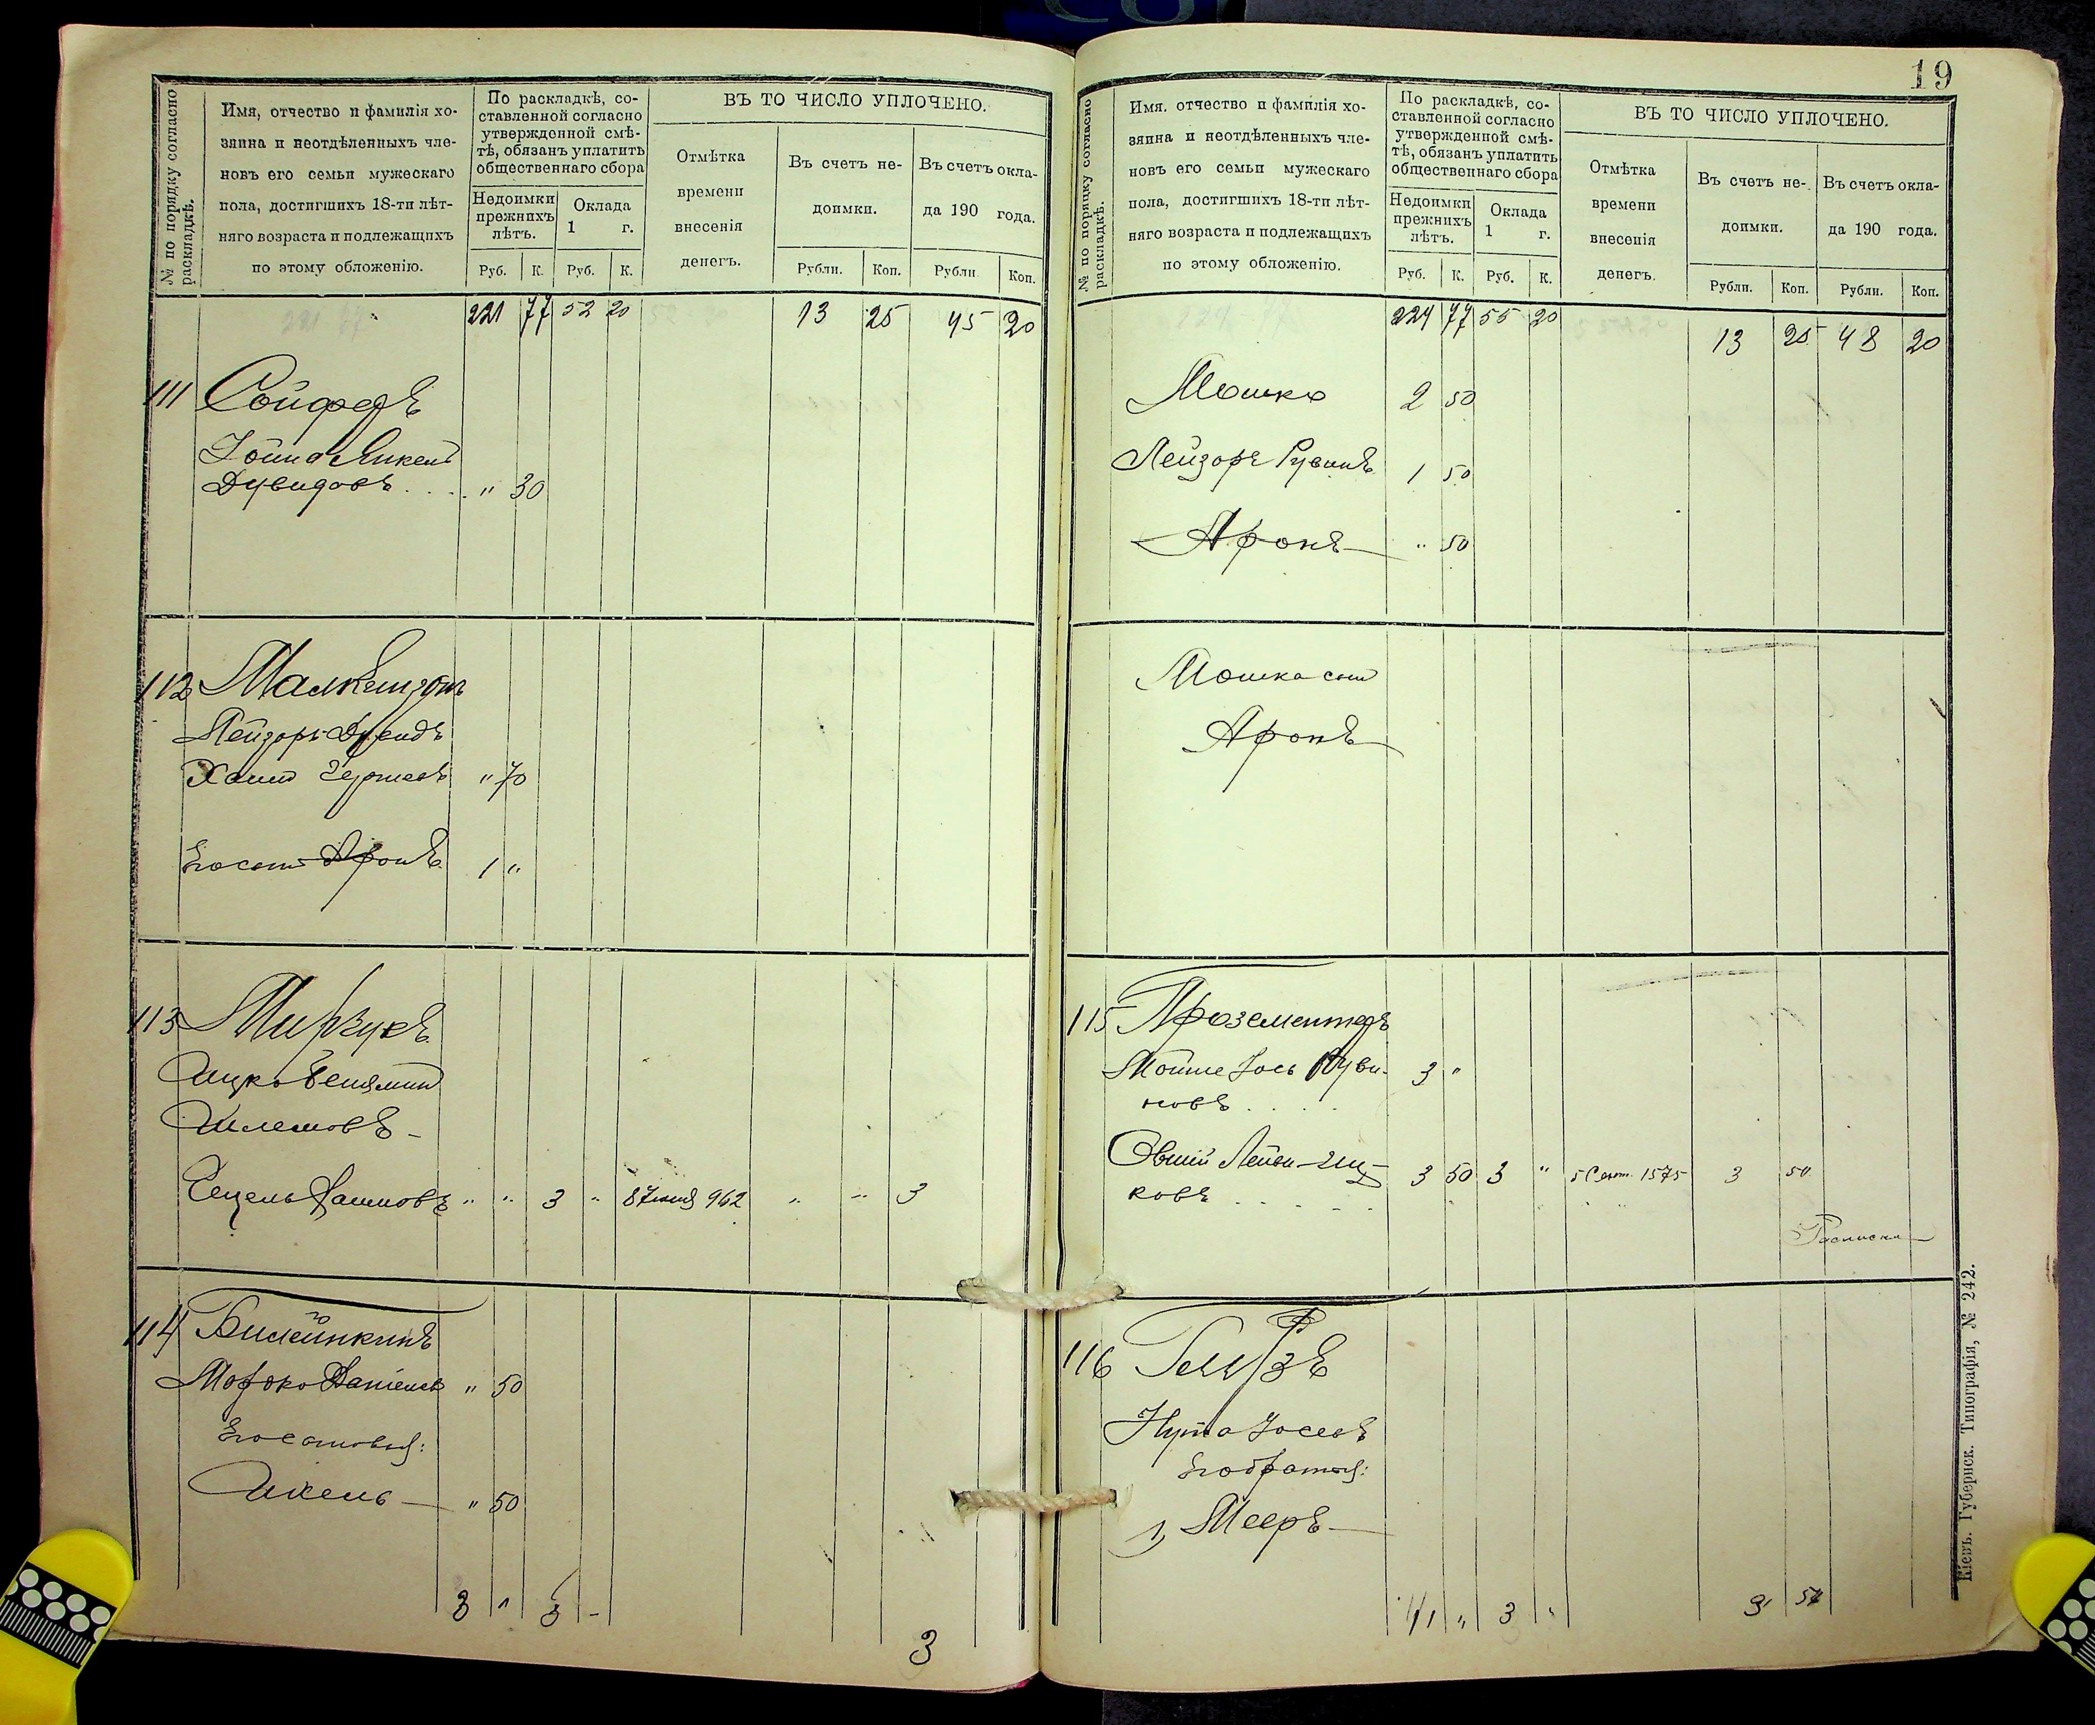 № по порядку согласно
раскладкѣ.
Имя, отчество и фамилія хо-
зяина и неотдѣленныхъ чле-
новъ его семьи мужескаго
пола, достигшихъ 18-ти лѣт-
няго возраста и подлежащихъ
по этому обложенію.
По раскладкѣ, со-
ставленной согласно
утвержденной смѣ-
тѣ, обязанъ уплатить
общественнаго сбора
Недоимки
прежнихъ
лѣтъ.
Оклада
1 г.
Руб. К. Руб. К.
ВЪ ТО ЧИСЛО УПЛОЧЕНО.
Отмѣтка
времени
внесенія
денегъ.
Въ счетъ не-
доимки.
Въ счетъ окла-
да 190 года.
Рубли. Коп. Рубли. Коп.
221 77 52 20 13 25 45 20
111 Сойферъ
Іойна Янкель
Дувидовъ.... " 30
112 Малкензонъ
Лейзоръ Дувидъ
Хаимъ Гершевъ " 70
Его сынъ Аронъ 1 "
113
Ицко Бенцмин
Шлемовъ -
" " 3 " 8 Іюня 962 " " 3
114
Мордко " 50
Его сыновья:
" 50
3 " 3 -
3
19
№ по порядку согласно
раскладкѣ.
Имя, отчество и фамилія хо-
зяина и неотдѣленныхъ чле-
новъ его семьи мужескаго
пола, достигшихъ 18-ти лѣт-
няго возраста и подлежащихъ
по этому обложенію.
По раскладкѣ, со-
ставленной согласно
утвержденной смѣ-
тѣ, обязанъ уплатить
общественнаго сбора
Недоимки
прежнихъ
лѣтъ.
Оклада
1 г.
Руб. К. Руб. К.
ВЪ ТО ЧИСЛО УПЛОЧЕНО.
Отмѣтка
времени
внесенія
денегъ.
Въ счетъ не-
доимки.
Въ счетъ окла-
да 190 года.
Рубли. Коп. Рубли. Коп.
224 77 55 20 13 25 48 20
Мошко 2 50
Лейзоръ Рувинъ 1 50
Аронъ " 50
Мошка сын
Аронъ
115 Прозементеръ
Мойше Іось Руви- 3 "
новъ....
Овшій Лейви-Иц-
ковъ..... 3 50 3 " 5 Сент. 1575 3 50
Расписки
116
Нута Іосевъ
Его братья:
1, Мееръ
11 " 3 " 3 50
Кіевъ. Губернск. Типографія, № 242.